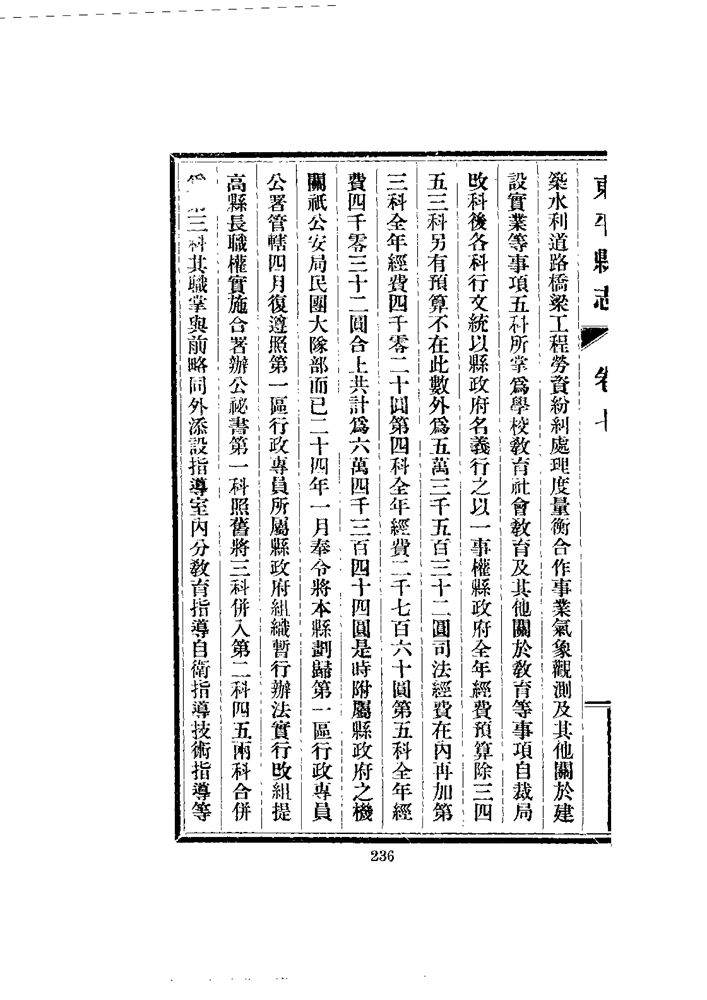 東平縣志 卷七
築水利道路橋梁工程勞資紛糾處理度量衡合作事業氣象觀測及其他關於建
設實業等事項五科所掌爲學校敎育社會敎育及其他關於敎育等事項自裁局
改科後各科行文統以縣政府名義行之以一事權縣政府全年經費預算除三四
五三科另有預算不在此數外爲五萬三千五百三十二圓司法經費在內再加第
三科全年經費四千零二十圓第四科全年經費二千七百六十圓第五科全年經
費四千零三十二圓合上共計爲六萬四千三百四十四圓是時附屬縣政府之機
關祇公安局民團大隊部而已二十四年一月奉令將本縣劃歸第一區行政專員
公署管轄四月復遵照第一區行政專員所屬縣政府組織暫行辦法實行改組提
高縣長職權實施合署辦公祕書第一科照舊將三科併入第二科四五兩科合併
爲第三科其職掌與前略同外添設指導室內分敎育指導自衛指導技術指導等
236